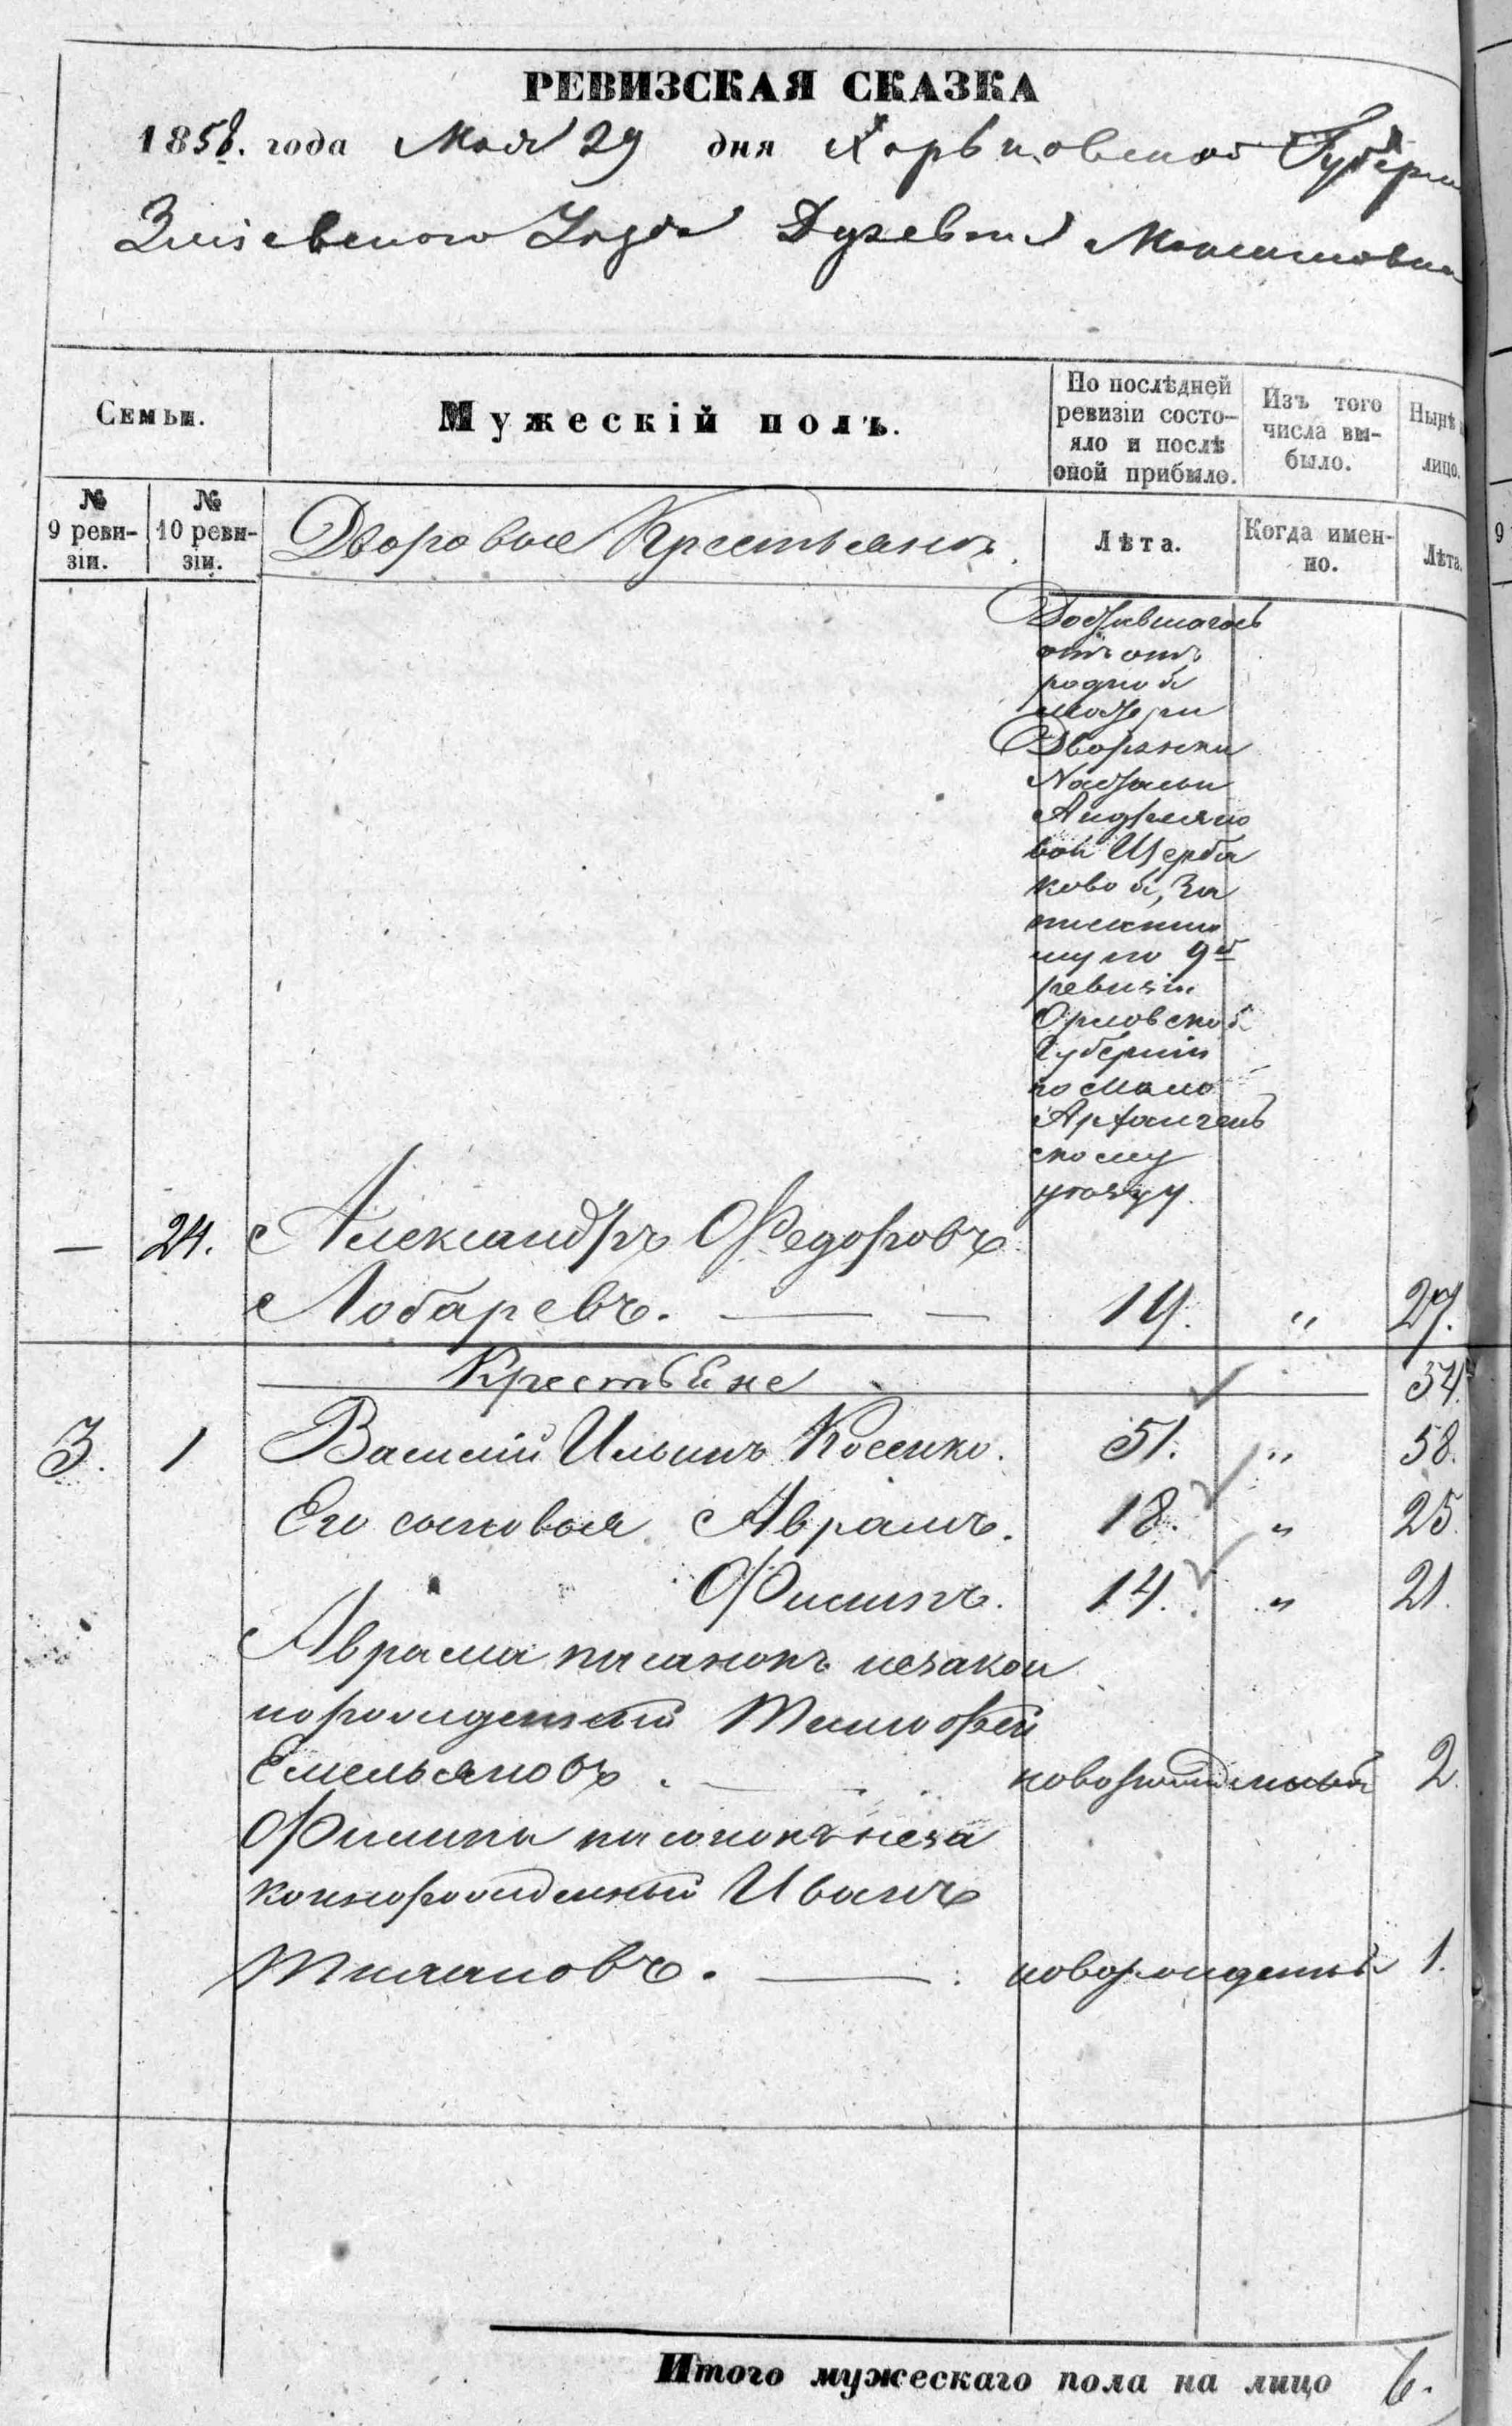 РЕВИЗСКАЯ СКАЗКА
1858. года Мая 29 дня Харьковской Губерн
Зміевского Уезда Максимовка
Семьи.
Мужескій полъ.
По послѣдней ревизіи состо-
яло и послѣ
оной прибыло.
Изъ того
числа вы-
было.
Нынѣ
лицо.
№
9 реви-
зіи.
№
10 реви-
зіи.
Дворовые Крестьяне.
Лѣта.
Когда имен-
но.
Лѣта.
Доставшагось
отъ
родной
матери
Дворянки
Натальи
Андреяно
вой Щерба
ковой, за
писанны
му по 9й
ревизіи
Орловской
Губерніи
по Мало
Архангель
скому
уезду.
— 24. Александръ Федоровъ
Лобаревъ. — — 19. „ 27.
Крестьяне 34.
3. 1 Василий Ильинъ Косенко. 51. „ 58.
Его сыновья Аврамъ. 18. „ 25.
Филипъ. 14. „ 21.
Аврама пасынокъ незакон
норожденный Тимофей
Емельяновъ. — новорожденный 2.
Филипа пасынокъ неза
коннорожденный Иванъ
Степановъ. — новорожденный 1.
Итого мужескаго пола на лицо 6.